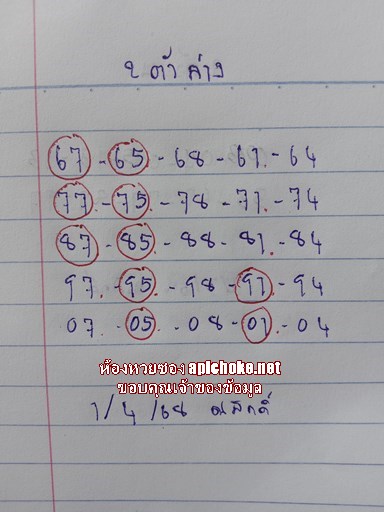 2 ตัว ล่าง
67 - 65 - 68 - 61 - 64
77 - 75 - 78 - 71 - 74
87 - 85 - 88 - 81 - 84
97 - 95 - 98 - 91 - 94
07 - 05 - 08 - 01 - 04
ห้องหวยซอง apichoke.net
ขอบคุณเจ้าของข้อมูล
1/4/68